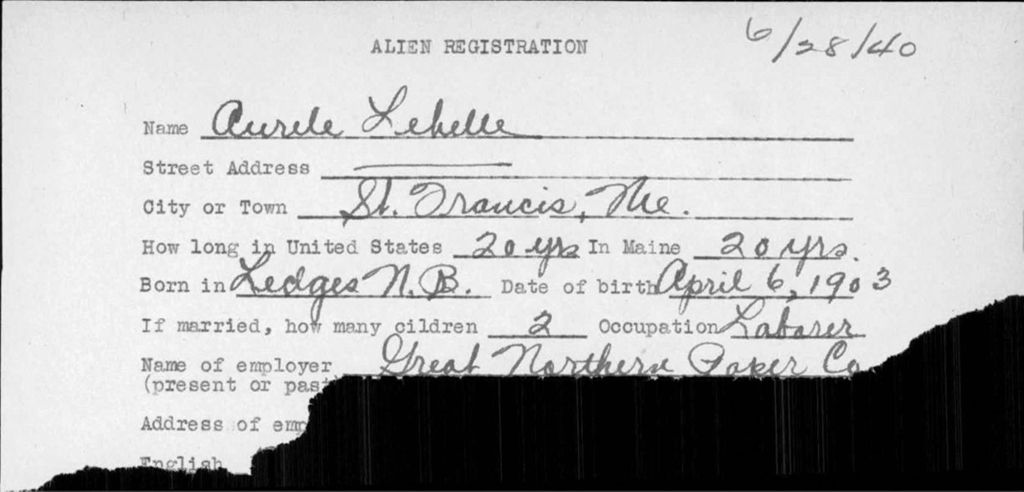 6/28/40
ALIEN REGISTRATION
Name Aurele Lebelle
Street Address
City or Town St. Francis, Me.
How long in United States 20 yrs In Maine 20 yrs.
Born in Ledges N.B. Date of birth April 6, 1903
If married, how many cildren 2 Occupation Laborer
Name of employer Great Northern Paper Co
(present or past
Address of emp
English